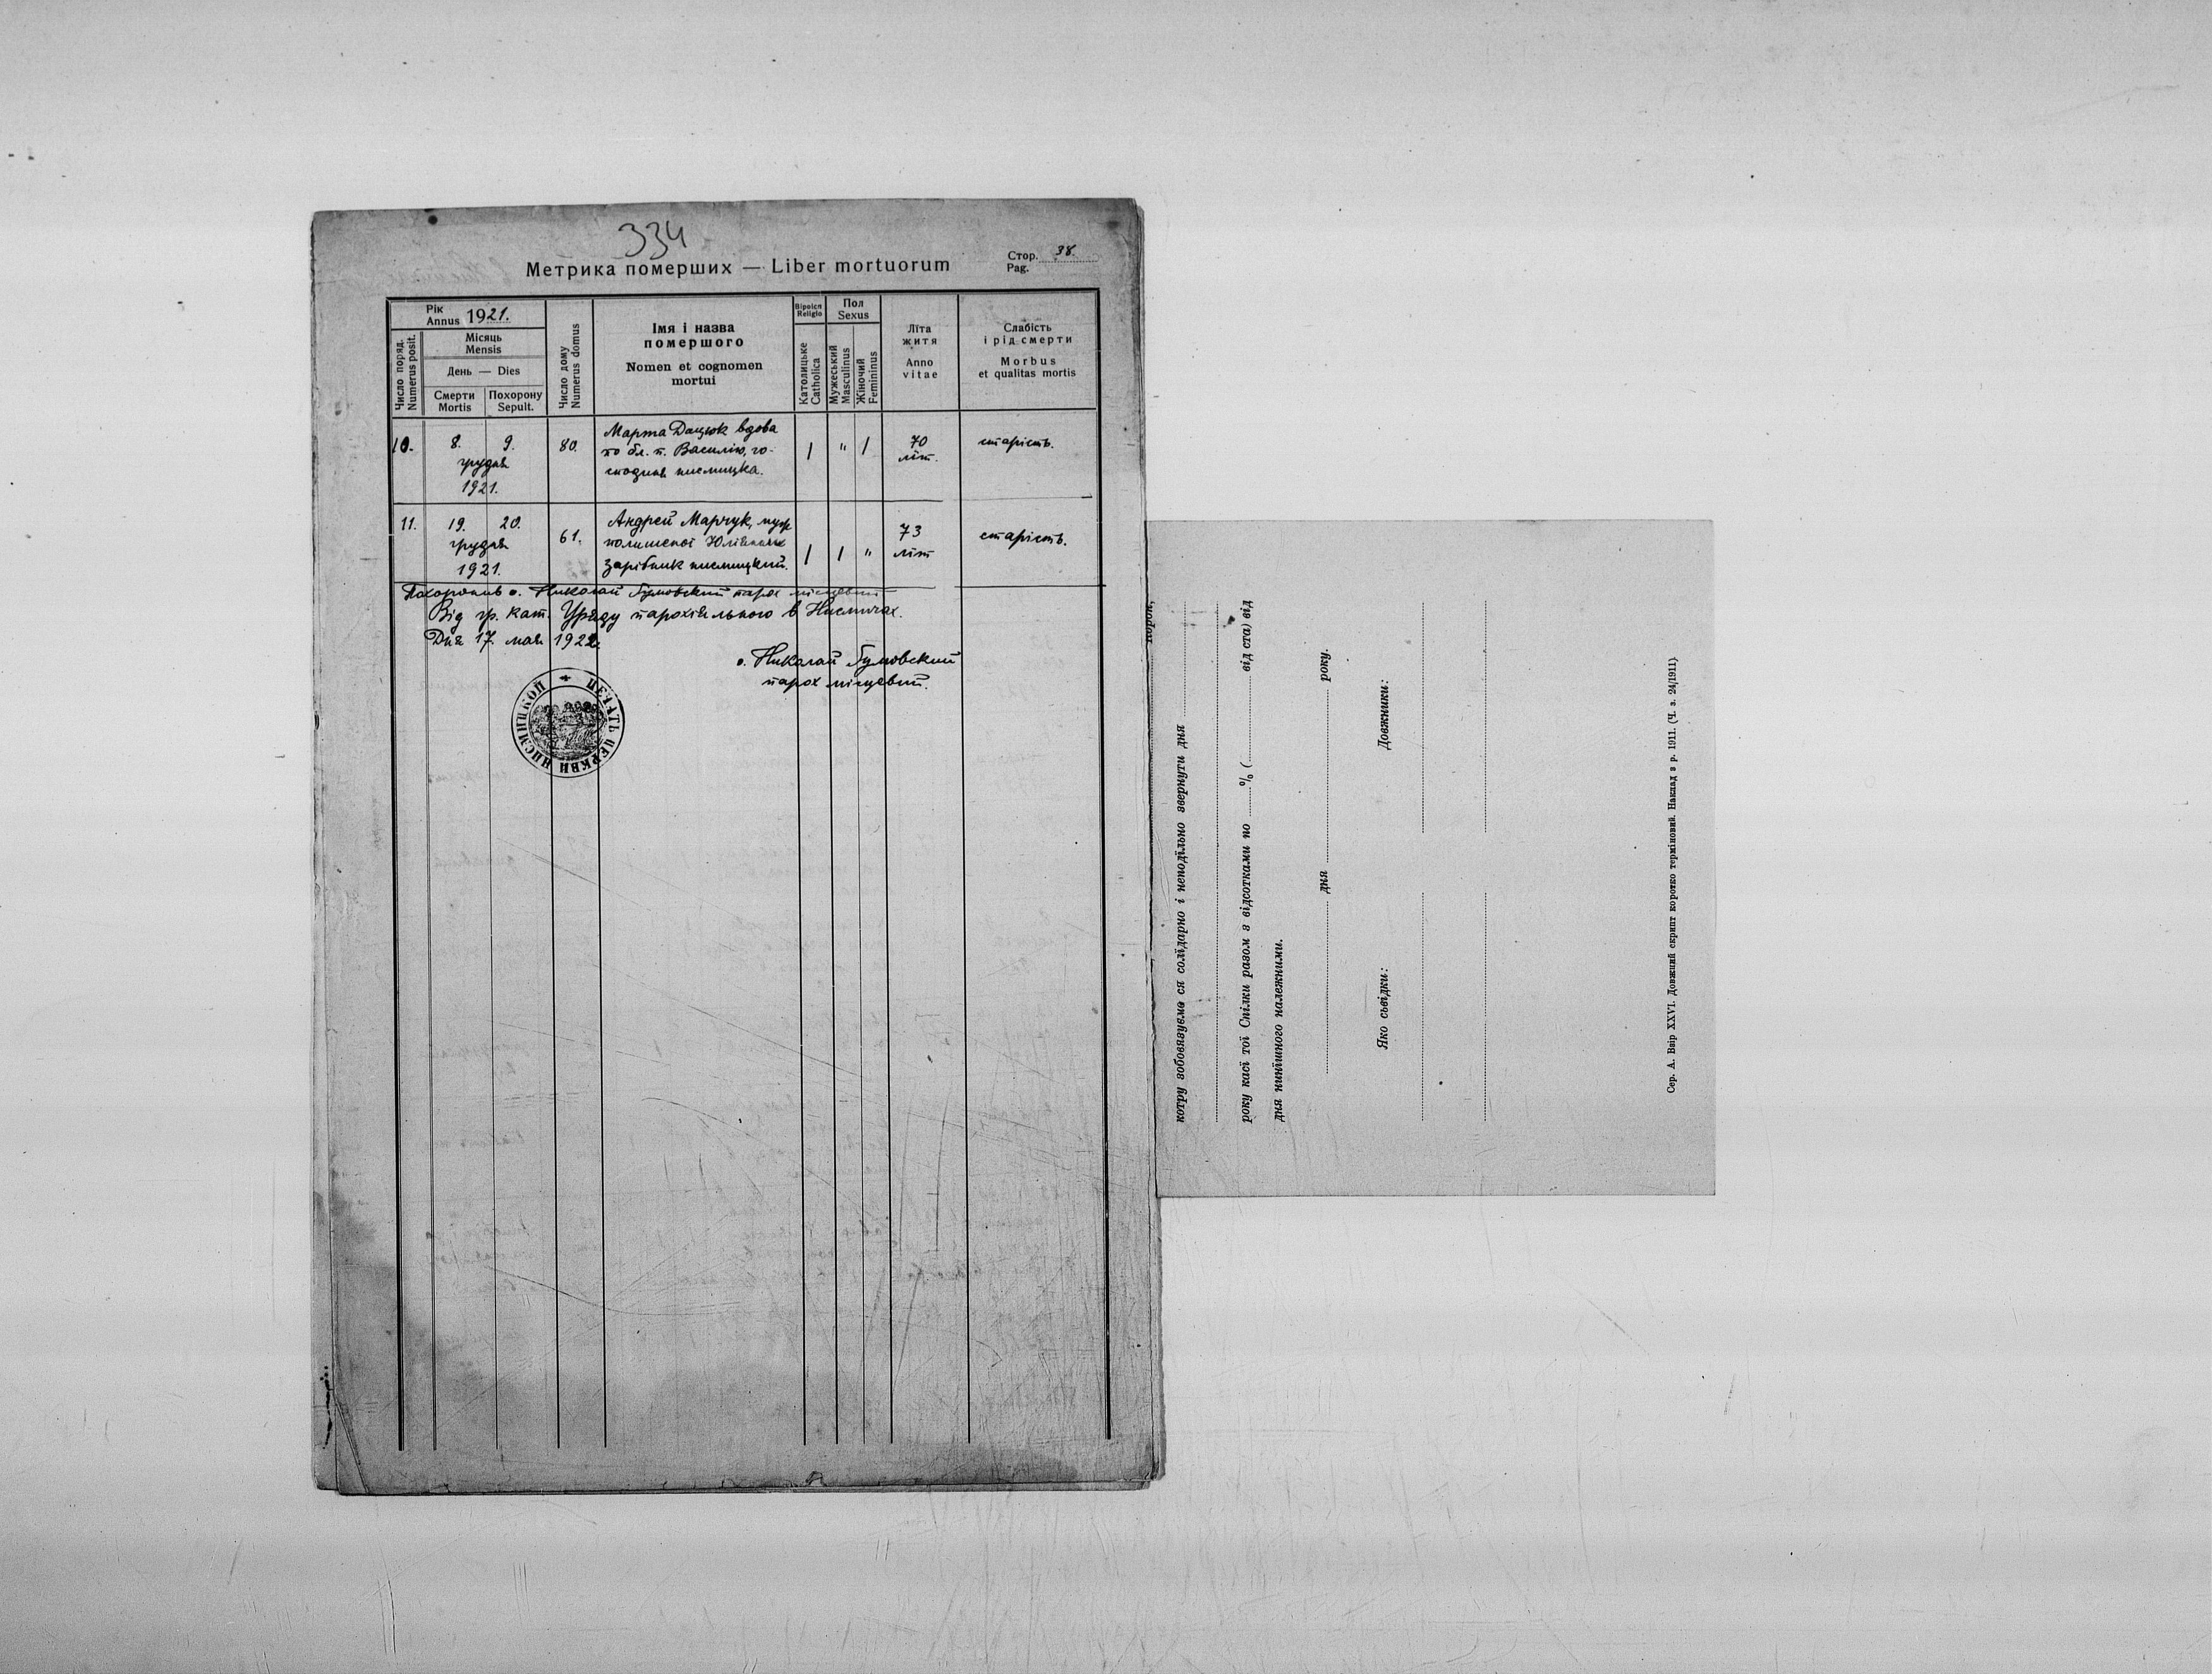 334
Метрика померших — Liber mortuorum
Стор. 38.
Pag.
Рік
Annus 1921.
Місяць
Mensis
День — Dies
Число поряд.
Numerus posit.
Смерти
Mortis
Похорону
Sepult.
Число дому
Numerus domus
Імя і назва
помершого
Nomen et cognomen
mortui
Віроісп
Religio
Католицьке
Catholica
Пол
Sexus
Мужеський
Masculinus
Жіночий
Femininus
Лїта
житя
Anno
vitae
Слабість
і рід смерти
Morbus
et qualitas mortis
10. 8. 9. 80. Марта Дацюк вдова / " / 70 старість.
грудня по бл. п. Василію, го- літ.
1921. сподиня нисмицка.
11. 19. 20. 61. Андрей Марчук, муж / / " 73 старість.
грудня полишеної літ
1921. зарібник нисмицкий.
Похоронив о. Николай парох місцевий
Від гр. кат. Уряду парохіяльного в Нисмичах.
Дня 17. мая 1922.
о. Николай
парох місцевий.
ПЕЧАТЬ ЦЕРКВИ НИСМИЦКОЙ
корон,
котру зобовязуємо ся солїдарно і неподїльно звернути дня
року касї тої Спілки разом з відсотками по % ( від ста) від
дня нинїшного належними.
дня року.
Яко сьвідки: Довжники:
Сер. А. Взір XXVI. Довжний скрипт коротко терміновий. Наклад з р. 1911. (Ч. з. 24/1911).